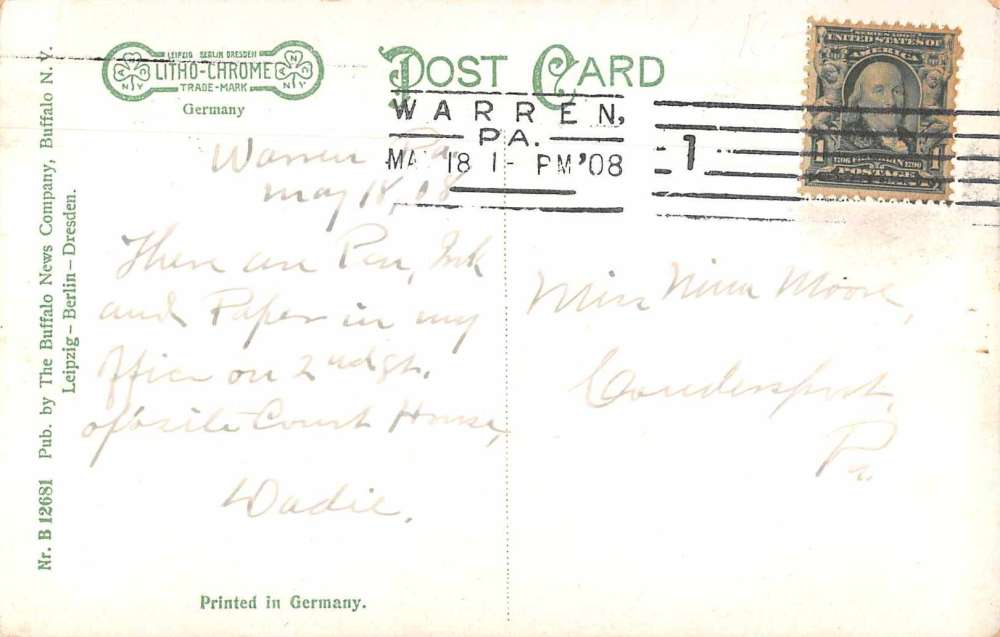 LEIPZIG BERLIN DRESDEN
LITHO-CHROME
TRADE-MARK
Germany
POST CARD
WARREN,
PA.
MAY 18 1- PM '08
1
SERIES 1902
UNITED STATES OF
AMERICA
1706 FRANKLIN 1790
1 ONE 1
POSTAGE
Warren Pa
May 18, 08
There are Pen, Ink
and Paper in my
office on 2nd st.
oposite Court House,
Dadie.
Miss Nina Moore,
Coudersport,
Pa.
Nr. B 12681 Pub. by The Buffalo News Company, Buffalo N. Y.
Leipzig – Berlin – Dresden.
Printed in Germany.